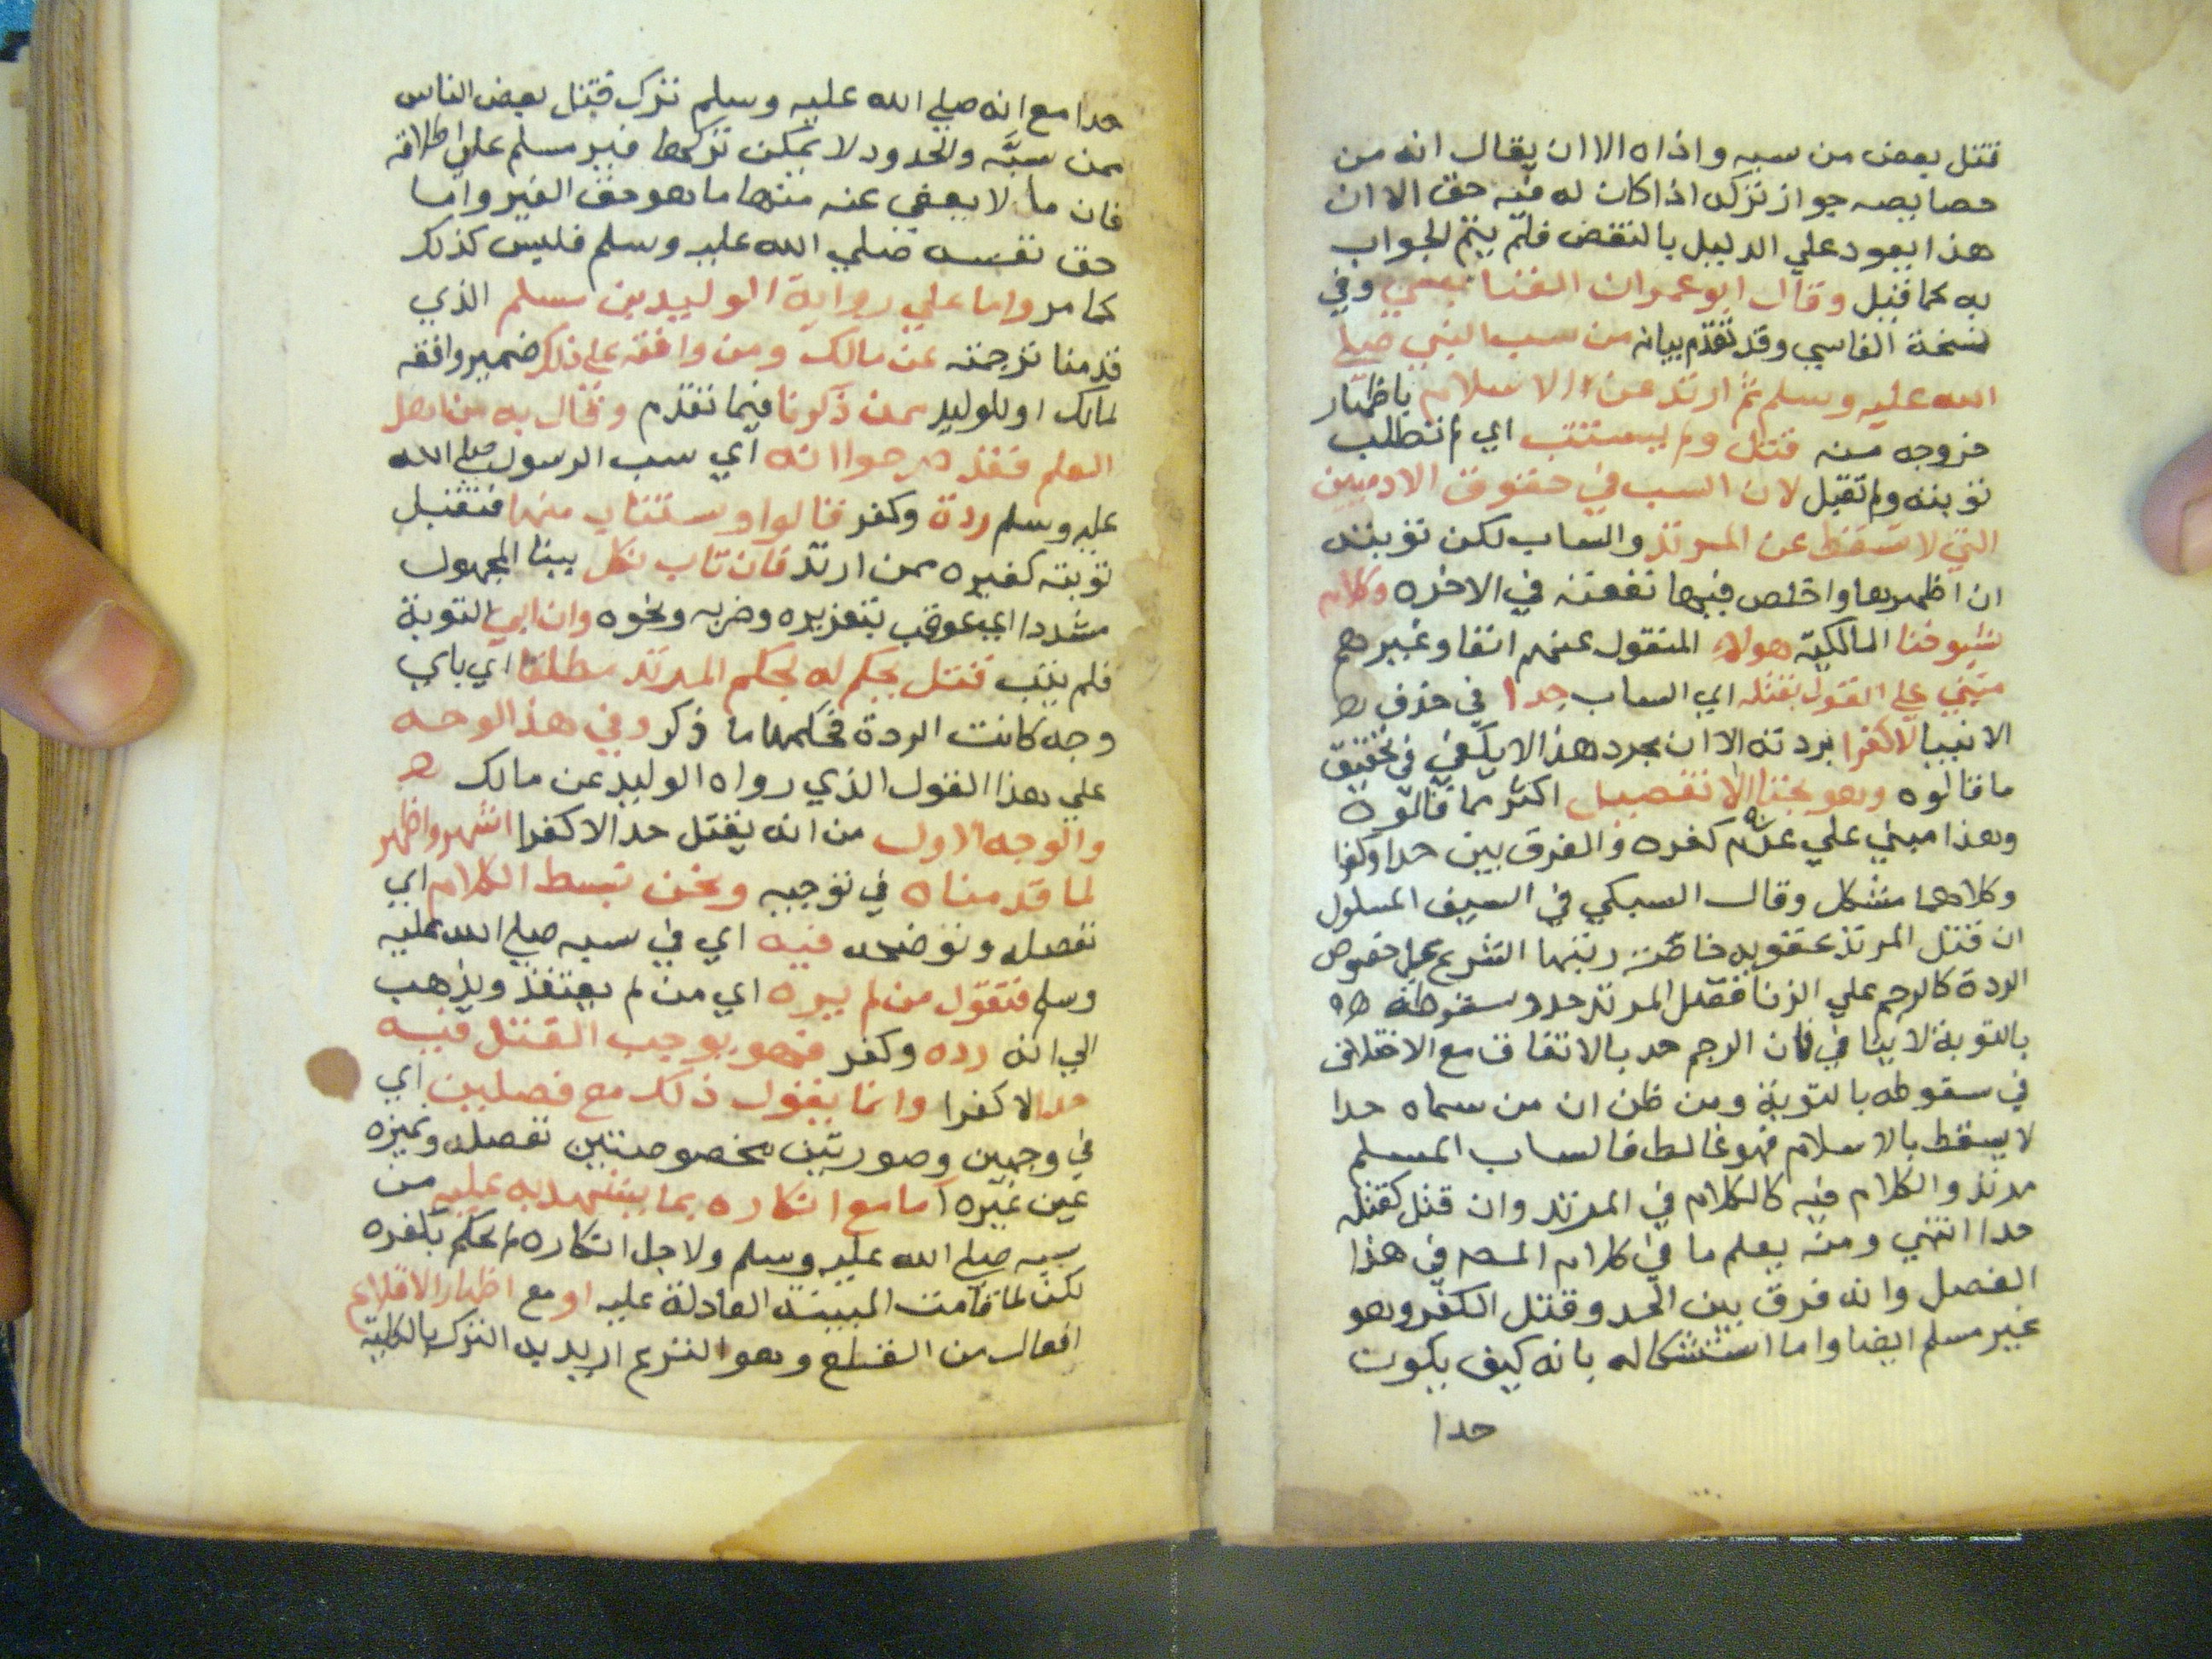 قتل بعض من سبه واذاه الا ان يقال انه من
خصايصه جواز تركه اذا كان له فيه حق الا ان
هذا يعود علي الدليل بالنقض فلم يتم الجواب
به كما قيل وقال ابو عمران الفاسي وفي
نسخة القابسي وقد تقدم بيانه من سب النبي صلي
الله عليه وسلم ثم ارتد عن الاسلام باظهار
خروجه منه قتل ولم يستتب اي لم تطلب
توبته ولم تقبل لان السب في حقوق الادميين
التي لا تسقط عن المرتد والساب لكن توبته
ان اظهرها واخلص فيها نفعته في الاخره وكلام
شيوخنا المالكية هولاء المنقول عنهم انفا وغيرهم
مبني علي القول بقتله اي الساب حدا في حذف
الانبيا لا كفرا بردته الا ان مجرد هذا لا يكفي في تحقيق
ما قالوه وهو يحتاج الا تفصيل اكثر مما قالوه
وهذا مبني علي عدم كفره والفرق بين حدا وكفرا
وكلاهما مشكل وقال السبكي في السيف المسلول
ان قتل المرتد عقوبه خاصة رتبها الشرع علي خصوص
الردة كالرجم علي الزنا فقتل المرتد حد وسقوطه
بالتوبة لا ينافي فان الرجم حد بالاتفاق مع الاختلاف
في سقوطه بالتوبة ومن ظن ان من سماه حدا
لا يسقط بالاسلام فهو غالط فالساب المسلم
مرتد والكلام فيه كالكلام في المرتد وان قتل كقتله
حدا انتهي ومنه يعلم ما في كلام المص في هذا
الفصل وانه فرق بين الحد وقتل الكفر وهو
غير مسلم ايضا واما استشكاله بانه كيف يكون
حدا
حدا مع انه صلي الله عليه وسلم ترك قتل بعض الناس
ممن سبه والحدود لا يمكن تركها فغير مسلم علي اطلاقه
فان ما لا يعفي عنه منها ما هو حق الغير واما
حق نفسه صلي الله عليه وسلم فليس كذلك
كما مر واما علي رواية الوليد بن مسلم الذي
قدمنا ترجمته عن مالك ومن وافقه علي ذلك ضمير وافقه
لمالك او للوليد ممن ذكرنا فيما تقدم وقال به من اهل
العلم فقد صرحوا انه اي سب الرسول صلي الله
عليه وسلم ردة وكفر قالوا ويستتاب منها فتقبل
توبته كغيره ممن ارتد فان تاب نكل ببنا المجهول
مشددا اي عوقب بتعزيره وضربه ونحوه وان ابي التوبة
فلم يتب قتل بحكم له بحكم المرتد مطلقا اي باي
وجه كانت الردة فحكمها ما ذكر وفي هذا الوجه
علي هذا القول الذي رواه الوليد عن مالك
والوجه الاول من انه يقتل حدا لا كفرا اشهر واظهر
لما قدمناه في توجيه ونحن نبسط الكلام اي
نفصله ونوضحه فيه اي في سبه صلي الله عليه
وسلم فنقول من لم يره اي من لم يعتقد ويذهب
الي انه رده وكفر فهو يوجب القتل فيه
حدا لا كفرا وانما يقول ذلك مع فصلين اي
في وجهين وصورتين مخصوصتين تفصله وتميزه
عن غيره اما مع انكاره بما يشهد به عليه من
سبه صلي الله عليه وسلم ولاجل انكاره لم يحكم بكفره
لكن لما قامت البينة العادلة عليه او مع اظهار الاقلاع
افعال من القلع وهو النزع اريد به الترك بالكلية